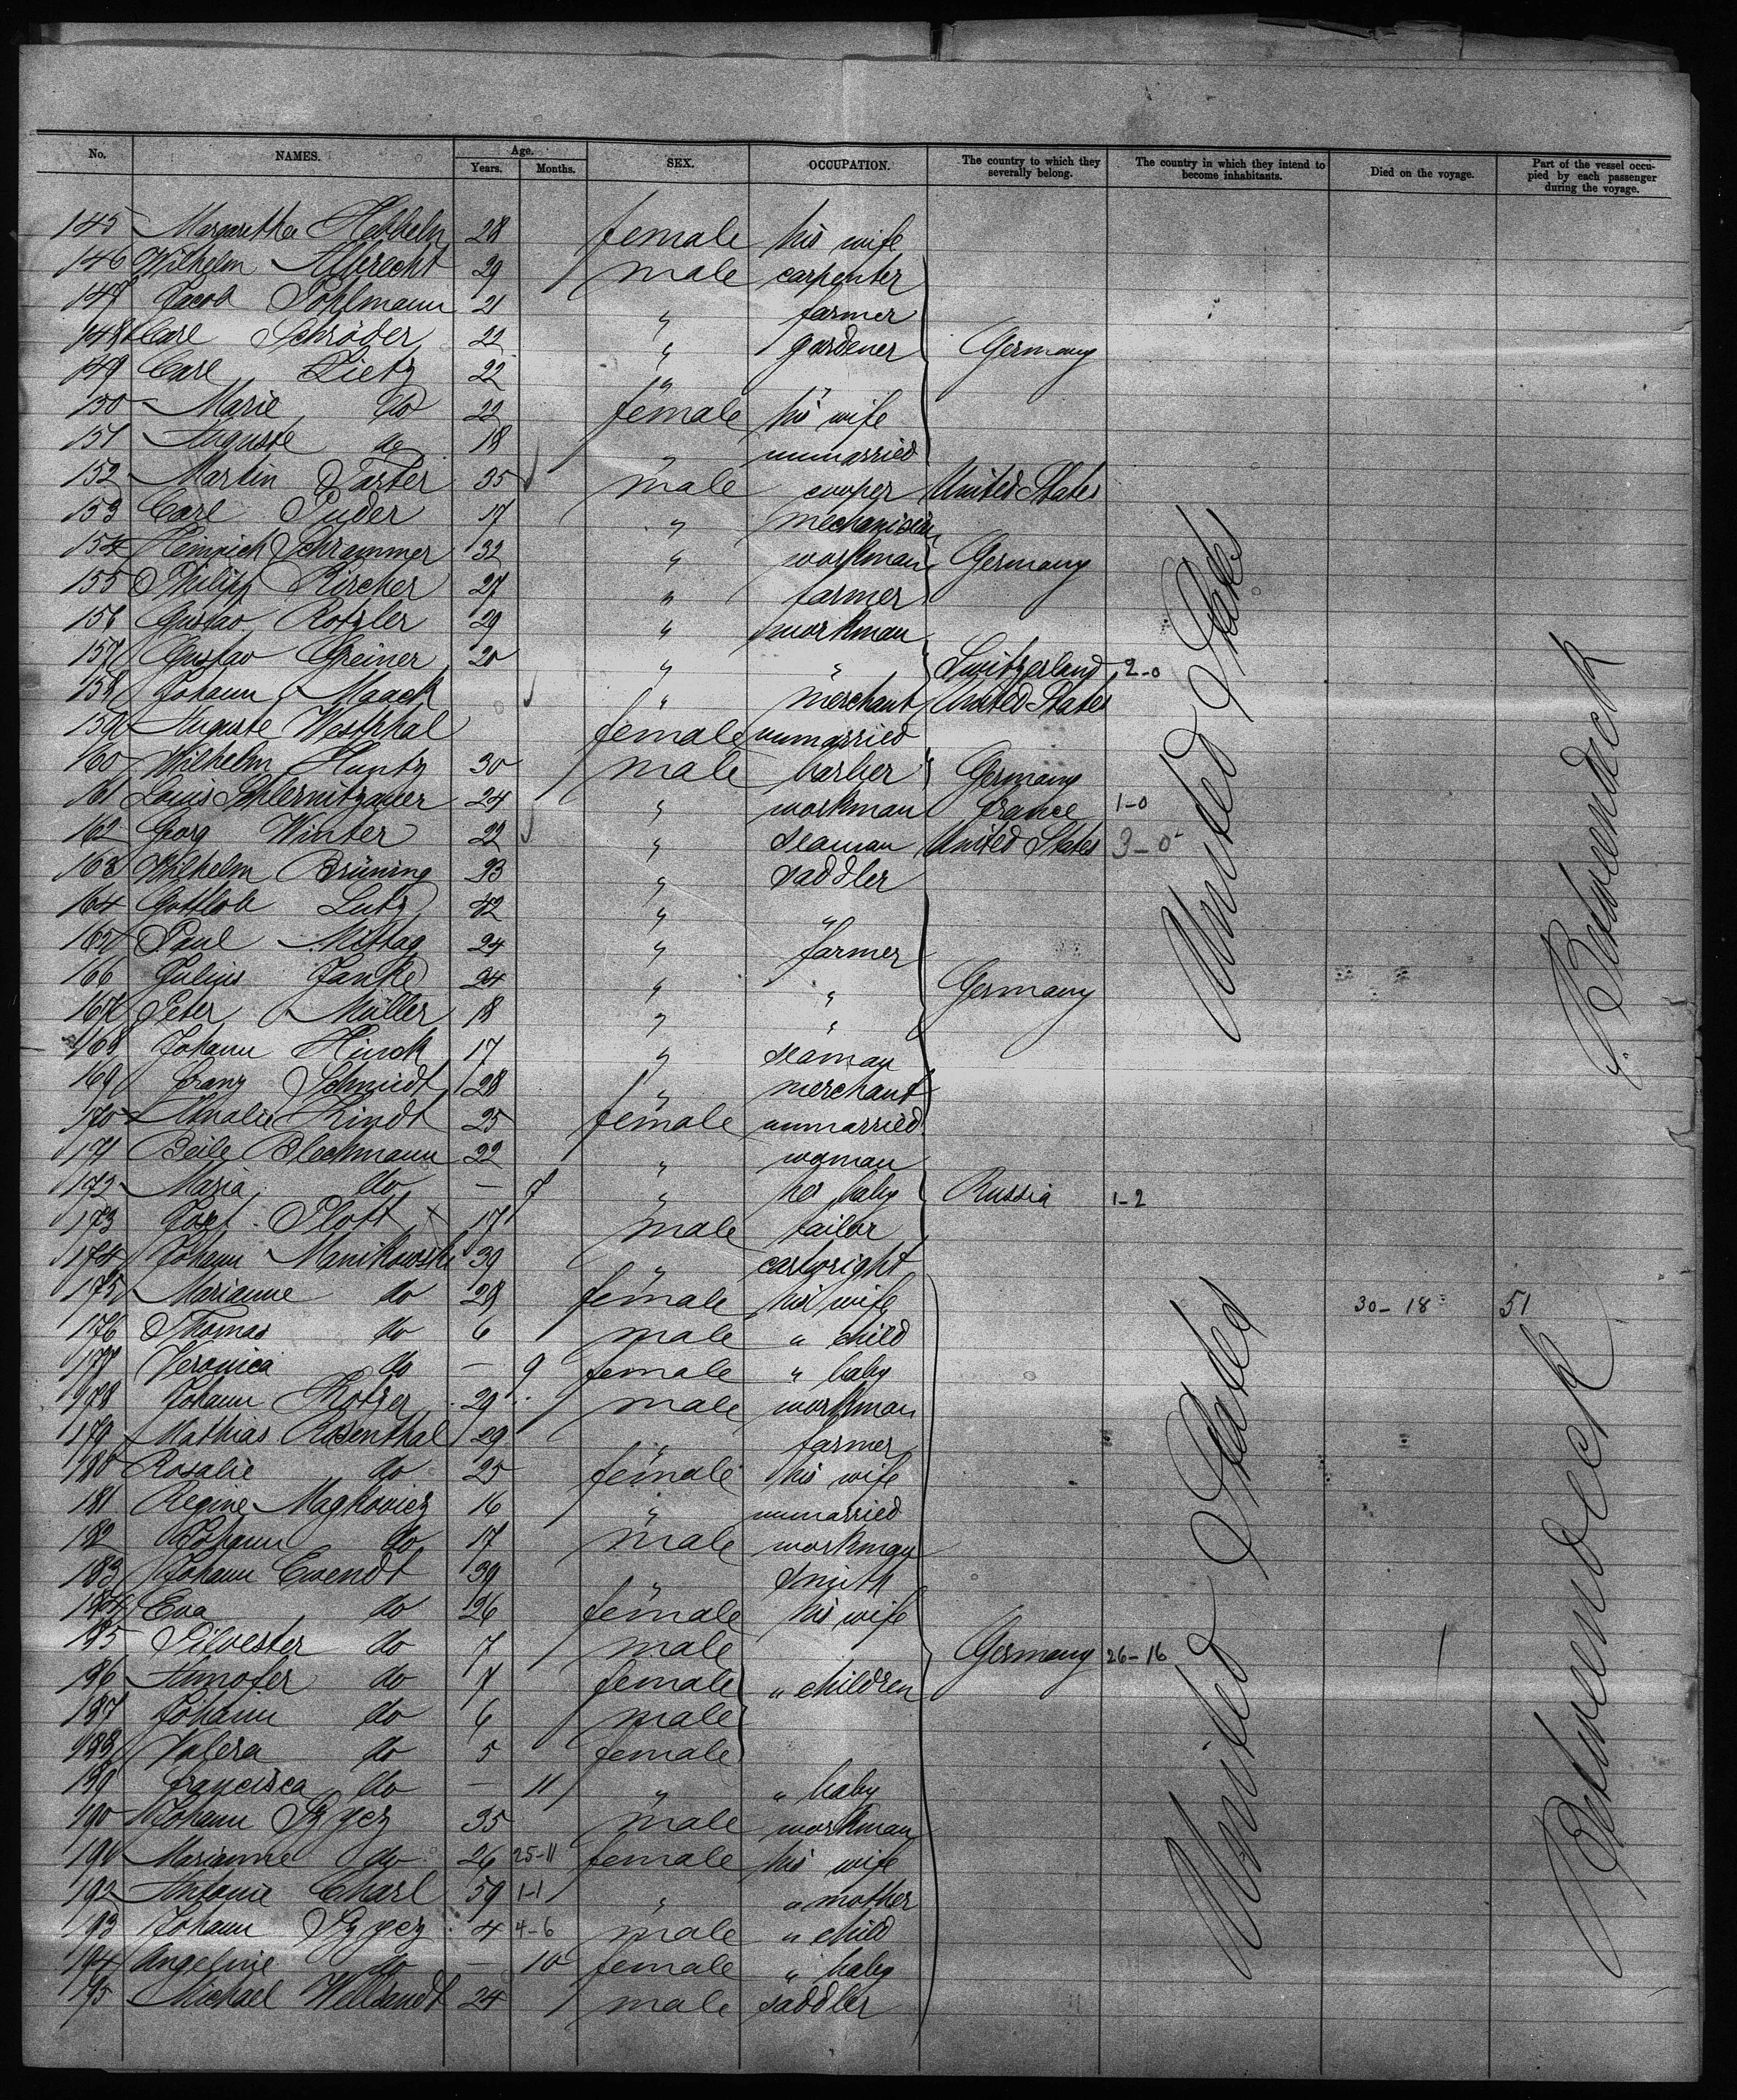 No. NAMES. Age. Years. Months. SEX. OCCUPATION. The country to which they severally belong. The country in which they intend to become inhabitants. Died on the voyage. Part of the vessel occupied by each passenger during the voyage.
145 Margaretha 28 female his wife
146 Wilhelm Albrecht 29 male carpenter
147 Jacob Pohlmann 21 " farmer
148 Carl Schröder 22 " gardener Germany
149 Carl Lietz 22 " "
150 Marie do 22 female his wife
151 Auguste do 18 " unmarried
152 Martin Farber 35 male cooper United States
153 Carl Puder 17 " mechanician
154 Heinrich Schrammer 32 " workman Germany
155 Philipp Kircher 27 " farmer
156 Gustav Rotzler 29 " workman
157 Gustav Greiner 20 " " Switzerland 2-0
158 Johann Maack " merchant United States
159 Auguste Westphal female unmarried
160 Wilhelm Huntz 30 male barber Germany
161 Louis Schlernitzauer 24 " workman France 1-0
162 Georg Winter 22 " seaman United States 3-0
163 Wilhelm Brüning 23 " saddler
164 Gottlob Lutz 42 " "
165 Paul Mittag 24 " farmer
166 Julius Janke 24 " " Germany
167 Peter Müller 18 " "
168 Johann Hinck 17 " seaman
169 Franz Schmidt 28 " merchant
170 Amalie Kindt 25 female unmarried
171 Beile Blechmann 22 " woman
172 Maria do — 7 " her baby Russia 1-2
173 Josef Plott 17 male tailor
174 Johann Manikowski 39 " cartwright
175 Marianne do 28 female his wife 30-18 51
176 Thomas do 6 male " child
177 Veronica do — 9 female " baby
178 Johann 29 male workman
179 Mathias Rosenthal 29 " farmer
180 Rosalie do 25 female his wife
181 Regine Magkovicz 16 " unmarried
182 Johann do 17 male workman
183 Johann Ewendt 39 " smith
184 Eva do 26 female his wife
185 Silvester do 7 male
186 do 7 female " children Germany 26-16
187 Johann do 6 male
188 Valera do 5 female
189 Francisca do — 11 " " baby
190 Johann 35 male workman
191 Marianne do 26 25-11 female his wife
192 Antonie Charl 59 1-1 " " mother
193 Johann 4 4-6 male " child
194 Angeline do — 10 female " baby
195 Michael Wellsandt 24 male saddler
United States
United States
Betweendeck
Betweendeck